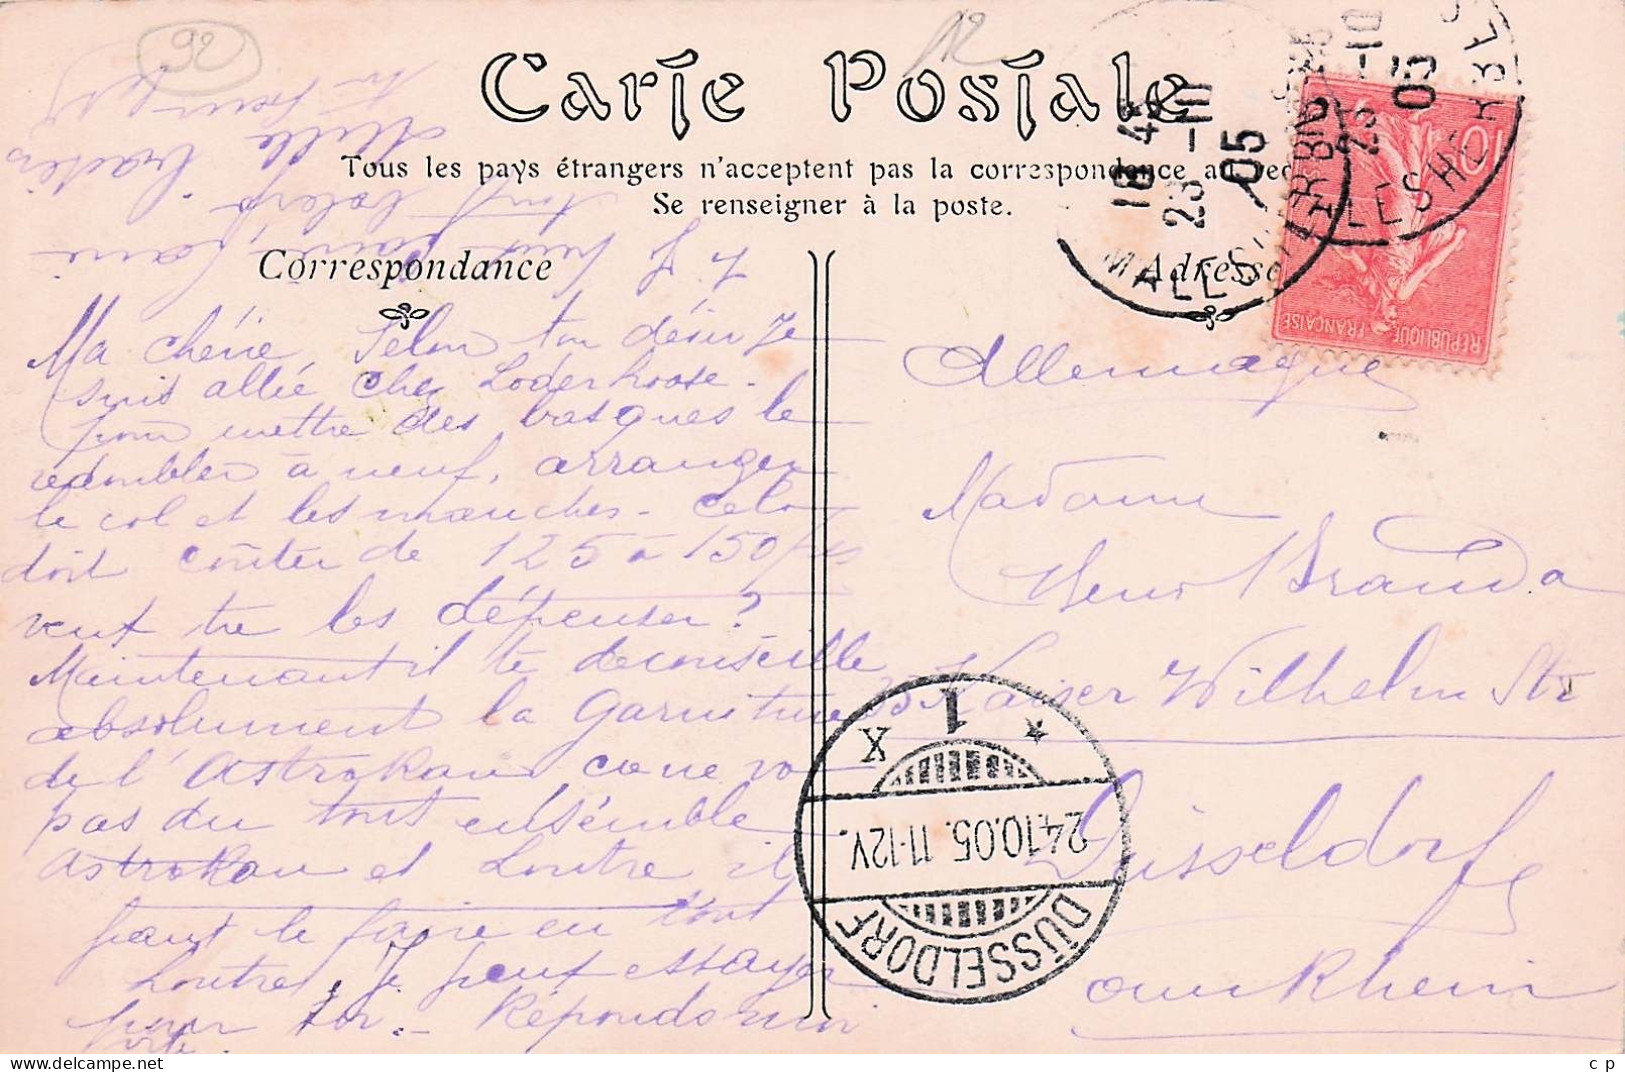 92
12
Carte Postale
Tous les pays étrangers n'acceptent pas la correspondance au
Se renseigner à la poste.
Correspondance
Adresse
Ma chérie, Selon ton désir Je
suis allée chez Loderhoose.
pour mettre des basques le
redoubler à neuf, arranger
le col et les manches. Cela
doit coûter de 125 à 150 frs
veux tu les dépenser?
Maintenant il te deconseille
absolument la garniture
de l'Astrakan ca ne va
pas du tout ensemble
Astrakan et Loutre il
faut le faire en tout
Loutre, Je peux essayer
pour toi. - Reponds moi
vite.
Allemagne
Madame
Henri Branda
Kaiser Wilhelm Str
Düsseldorf
am Rhein
18 45
23 -10
05
MALESHERBES
23 -10
05
10
REPUBLIQUE FRANÇAISE
DÜSSELDORF
24.10.05. 11-12V.
* 1 X
c p